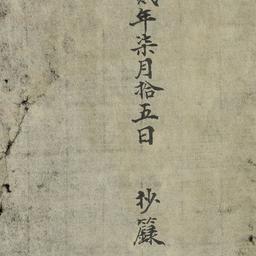 年柒月拾五日 抄籙